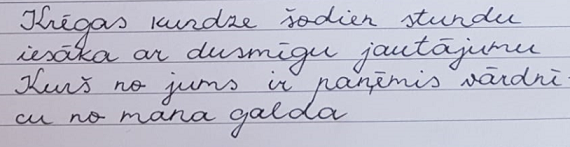 Krēgas kundze šodien stundu
iesāka ar dusmīgu jautājumu
Kurš no jums ir paņēmis vārdnī-
cu no mana galda